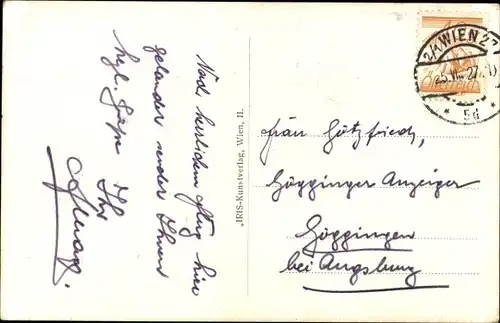 Nach herrlichem Flug hier
gelandet sendet Ihnen
hzl. Grüße Ihr
"IRIS-Kunstverlag, Wien, II.
2/1 WIEN 27
* 5d *
Frau Götzfried,
Gögginger Anzeiger
Göggingen
bei Augsburg